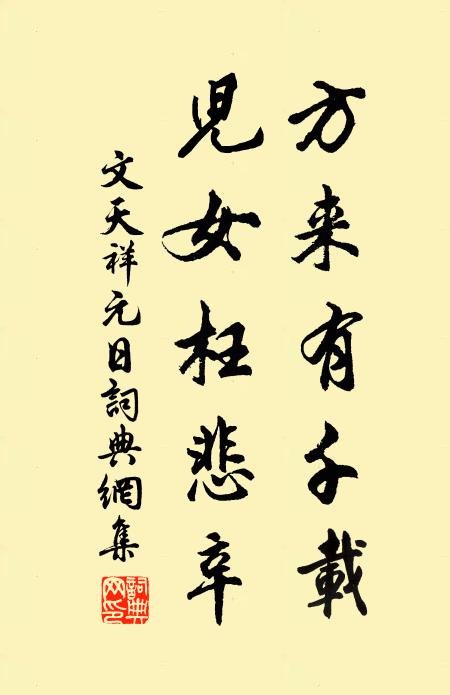 方来有千載
兒女枉悲辛
文天祥元日詞典網集
詞典網印